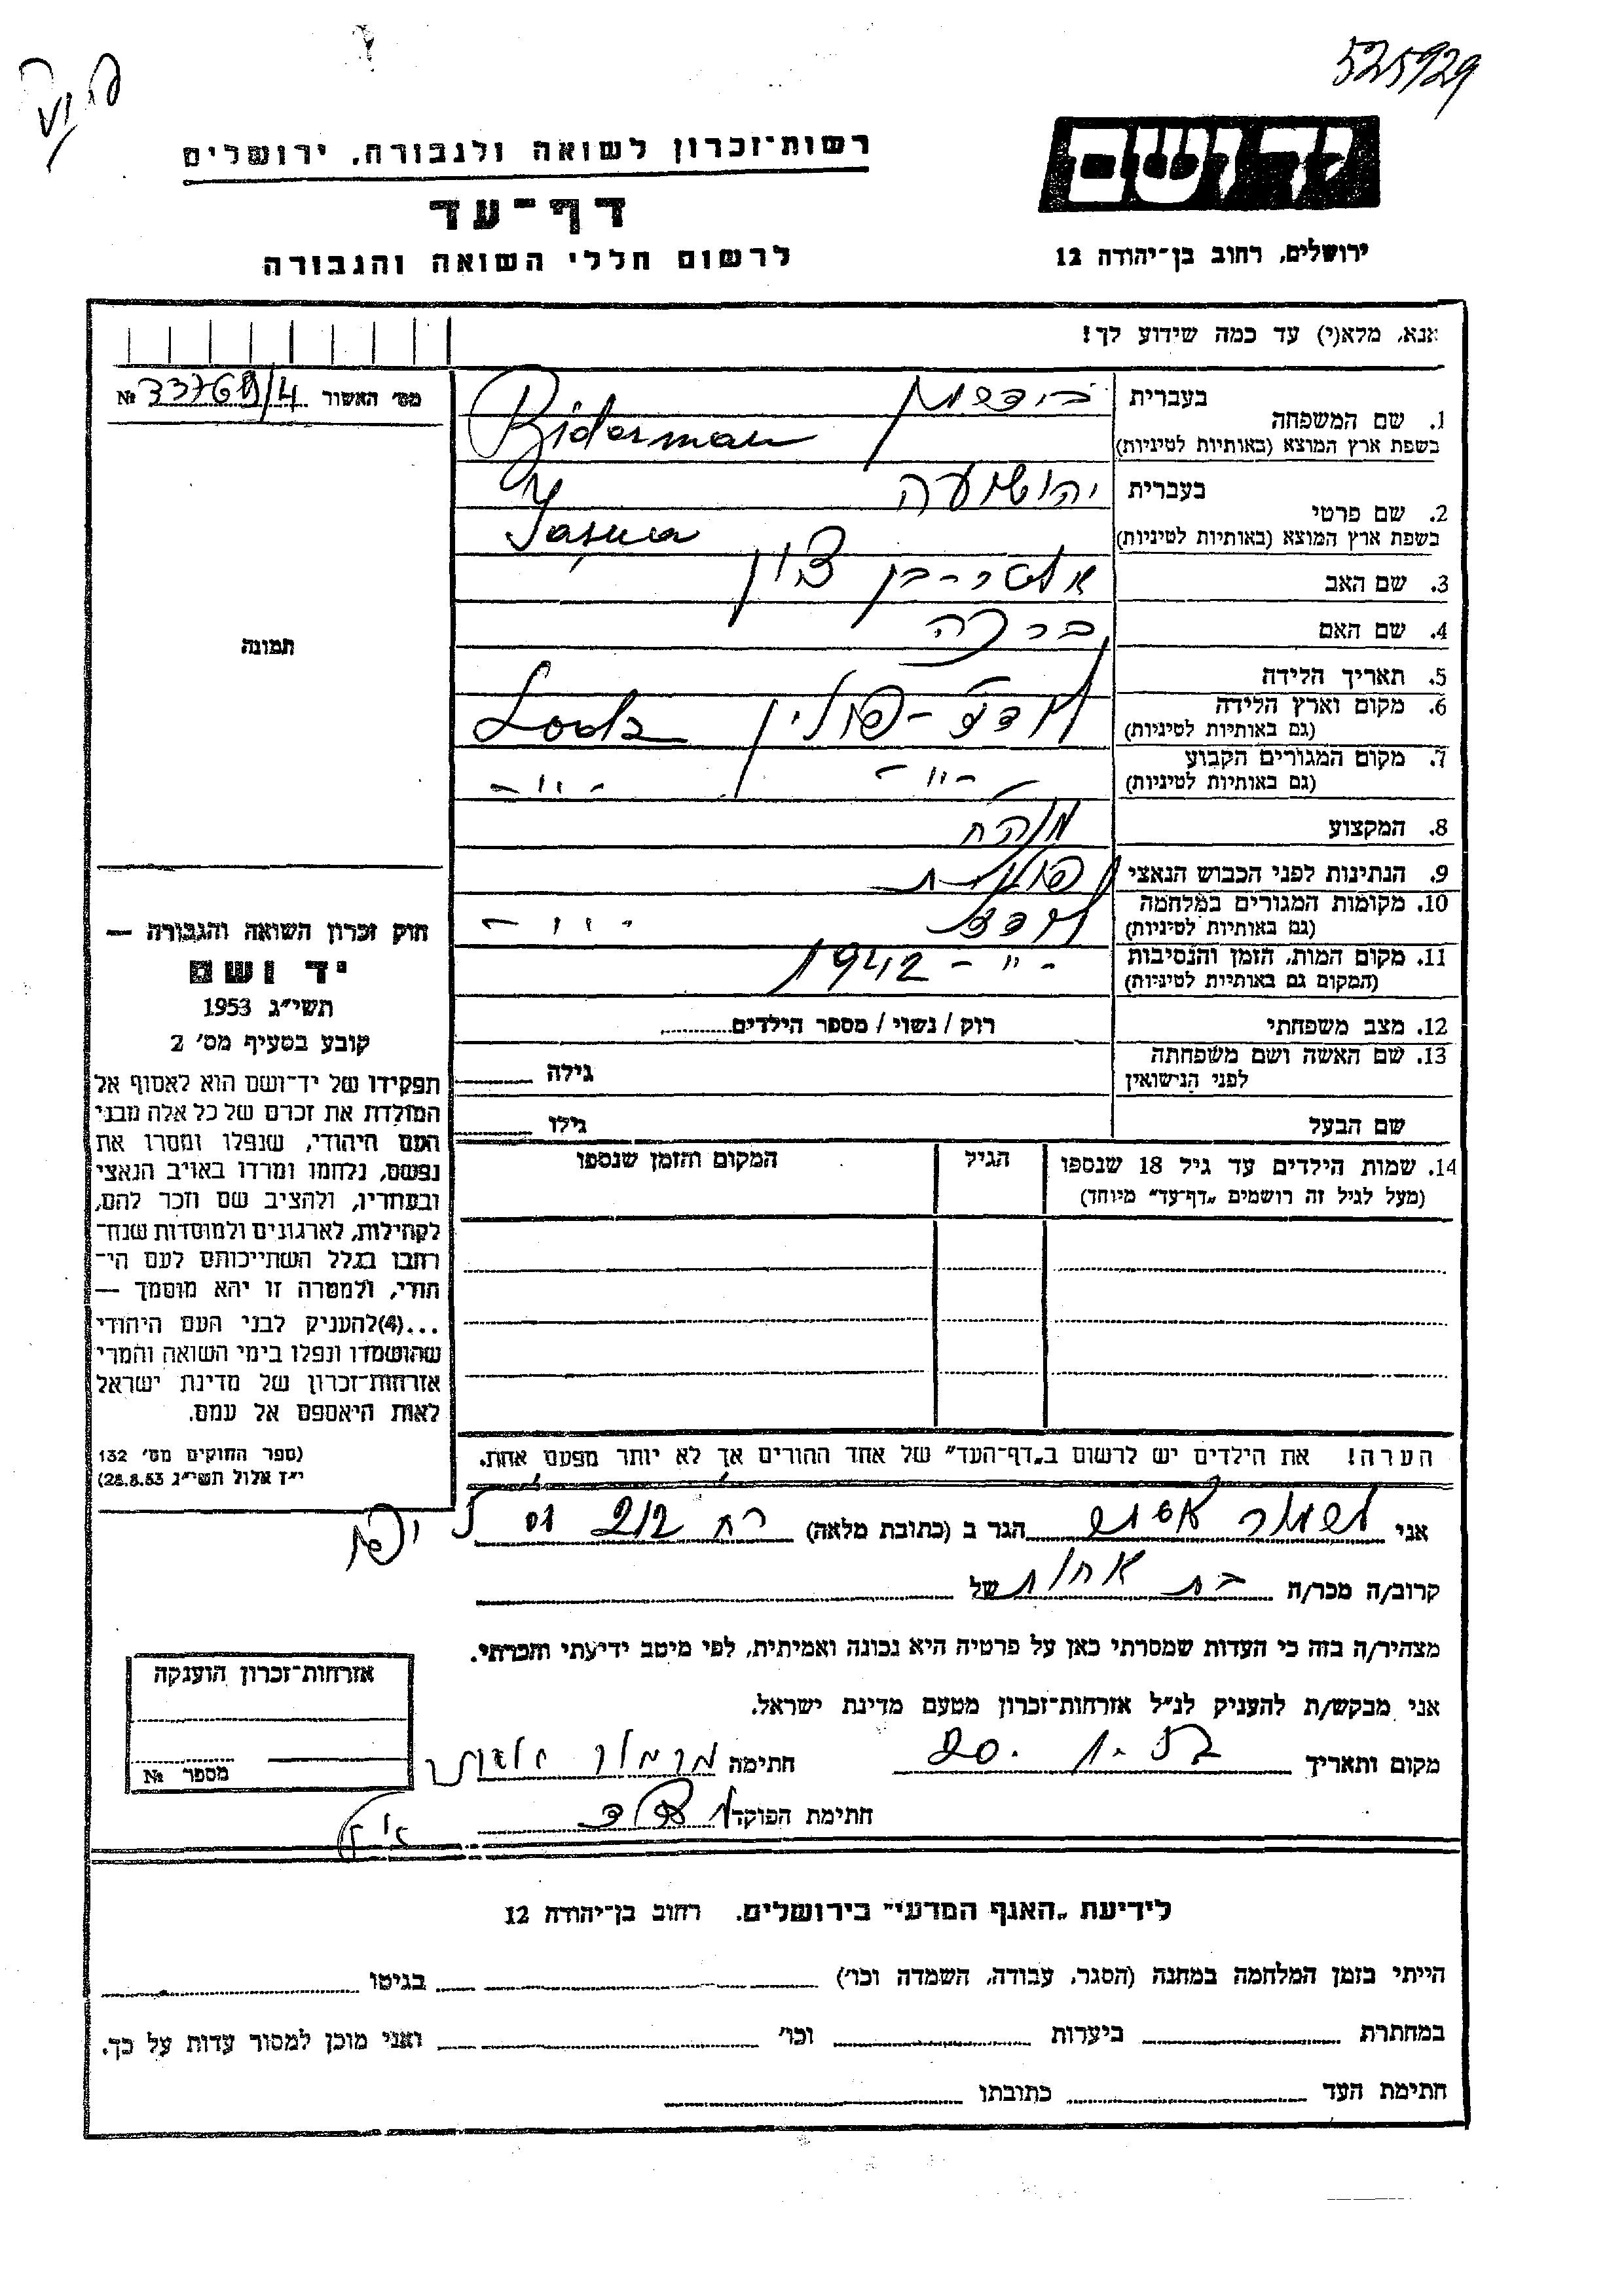 525929
יד ושם
רשות־זכרון לשואה ולגבורה, ירושלים
דף־עד
לרשום חללי השואה והגבורה
ירושלים, רחוב בן־יהודה 12
אנא, מלא(י) עד כמה שידוע לך!
מס׳ האשור 4/ №
1. שם המשפחה
בעברית בידרמן
בשפת ארץ המוצא (באותיות לטיניות) Biderman
2. שם פרטי
בעברית יהושועה
בשפת ארץ המוצא (באותיות לטיניות) Jasua
3. שם האב אלטר־בן ציון
4. שם האם ברכה
5. תאריך הלידה
6. מקום וארץ הלידה לודז׳ - פולין Lodz
(גם באותיות לטיניות)
7. מקום המגורים הקבוע - " - - " -
(גם באותיות לטיניות)
8. המקצוע
9. הנתינות לפני הכבוש הנאצי פולנית
10. מקומות המגורים במלחמה לודז׳ - " -
(גם באותיות לטיניות)
11. מקום המות, הזמן והנסיבות - " - 1942
(המקום גם באותיות לטיניות)
12. מצב משפחתי רוק / נשוי / מספר הילדים
13. שם האשה ושם משפחתה גילה
לפני הנישואין
שם הבעל גילו
14. שמות הילדים עד גיל 18 שנספו הגיל המקום והזמן שנספו
(מעל לגיל זה רושמים „דף־עד״ מיוחד)
הערה! את הילדים יש לרשום ב„דף־העד״ של אחד ההורים אך לא יותר מפעם אחת.
תמונה
חוק זכרון השואה והגבורה —
יד ושם
תשי״ג 1953
קובע בסעיף מס׳ 2
תפקידו של יד־ושם הוא לאסוף אל
המולדת את זכרם של כל אלה מבני
העם היהודי, שנפלו ומסרו את
נפשם, נלחמו ומרדו באויב הנאצי
ובעוזריו, ולהציב שם וזכר להם,
לקהילות, לארגונים ולמוסדות שנח־
רבו בגלל השתייכותם לעם הי־
הודי, ולמטרה זו יהא מוסמך —
...(4)להעניק לבני העם היהודי
שהושמדו ונפלו בימי השואה והמרי
אזרחות־זכרון של מדינת ישראל
לאות היאספם אל עמם.
(ספר החוקים מס׳ 132
י״ז אלול תשי״ג 28.8.53)
אני הגר ב (כתובת מלאה) רח 212 יפו
קרוב/ה מכר/ה בת אחות של
מצהיר/ה בזה כי העדות שמסרתי כאן על פרטיה היא נכונה ואמיתית, לפי מיטב ידיעתי והכרתי.
אני מבקש/ת להעניק לנ״ל אזרחות־זכרון מטעם מדינת ישראל.
מקום ותאריך חתימה
חתימת הפוקד
אזרחות־זכרון הוענקה
מספר №
לידיעת „האגף המדעי״ בירושלים. רחוב בן־יהודה 12
הייתי בזמן המלחמה במחנה (הסגר, עבודה, השמדה וכו׳) בגיטו
במחתרת ביערות וכו׳ ואני מוכן למסור עדות על כך.
חתימת העד כתובתו